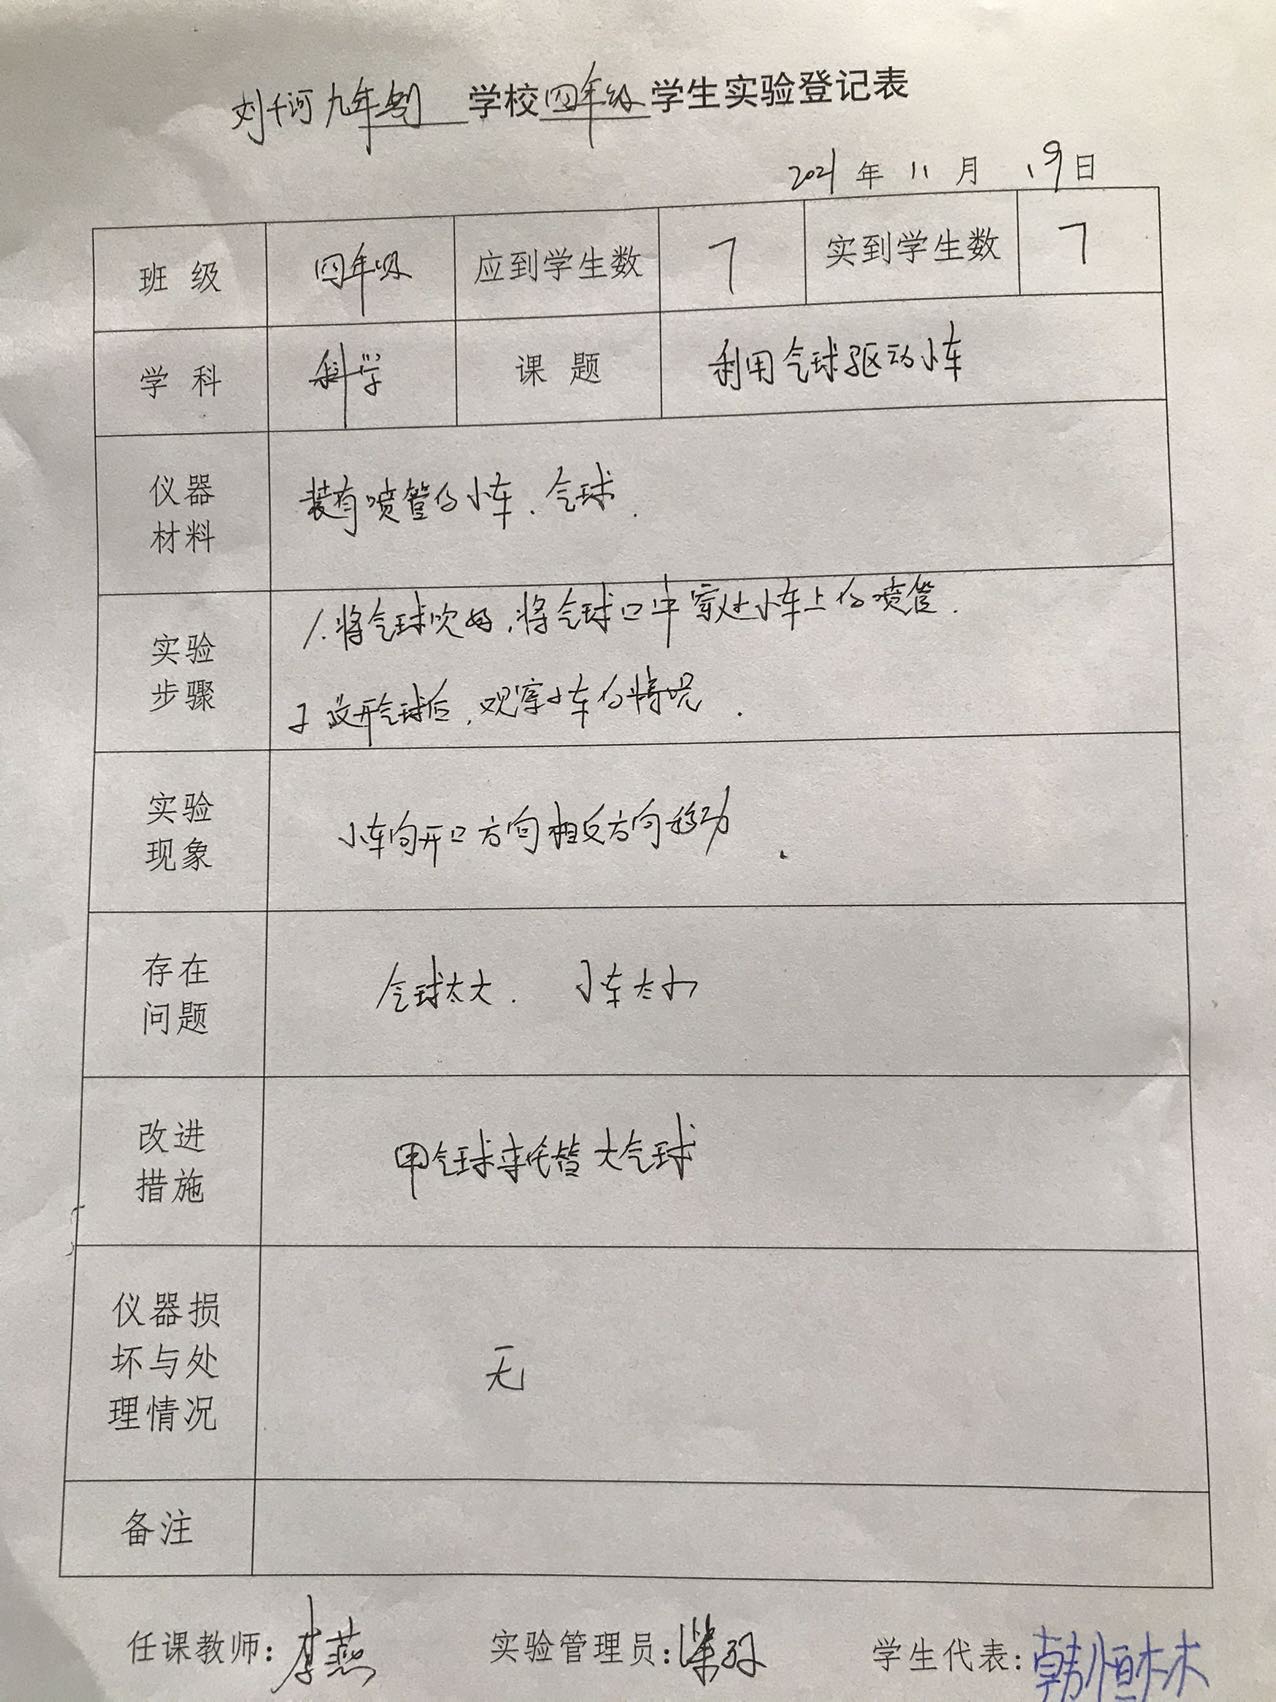 刘千河九年制学校四年级学生实验登记表
2021年11月19日
班级 四年级 应到学生数 7 实到学生数 7
学科 科学 课题 利用气球驱动小车
仪器材料 装有喷管的小车、气球.
实验步骤 1.将气球吹好,将气球口中穿过小车上的喷管.
2 放开气球后,观察小车的情况.
实验现象 小车向开口方向相反方向移动.
存在问题 气球太大. 小车太小
改进措施 用气球来代替大气球
仪器损坏与处理情况 无
备注
任课教师:李燕 实验管理员: 学生代表:韩恒林